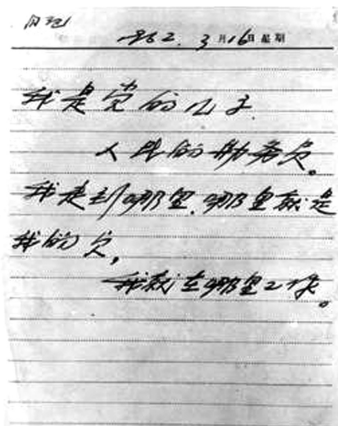 1962. 3月16日星期
我是党的儿子
人民的勤务员。
我走到哪里,哪里就是
我的家,
我就在哪里工作。